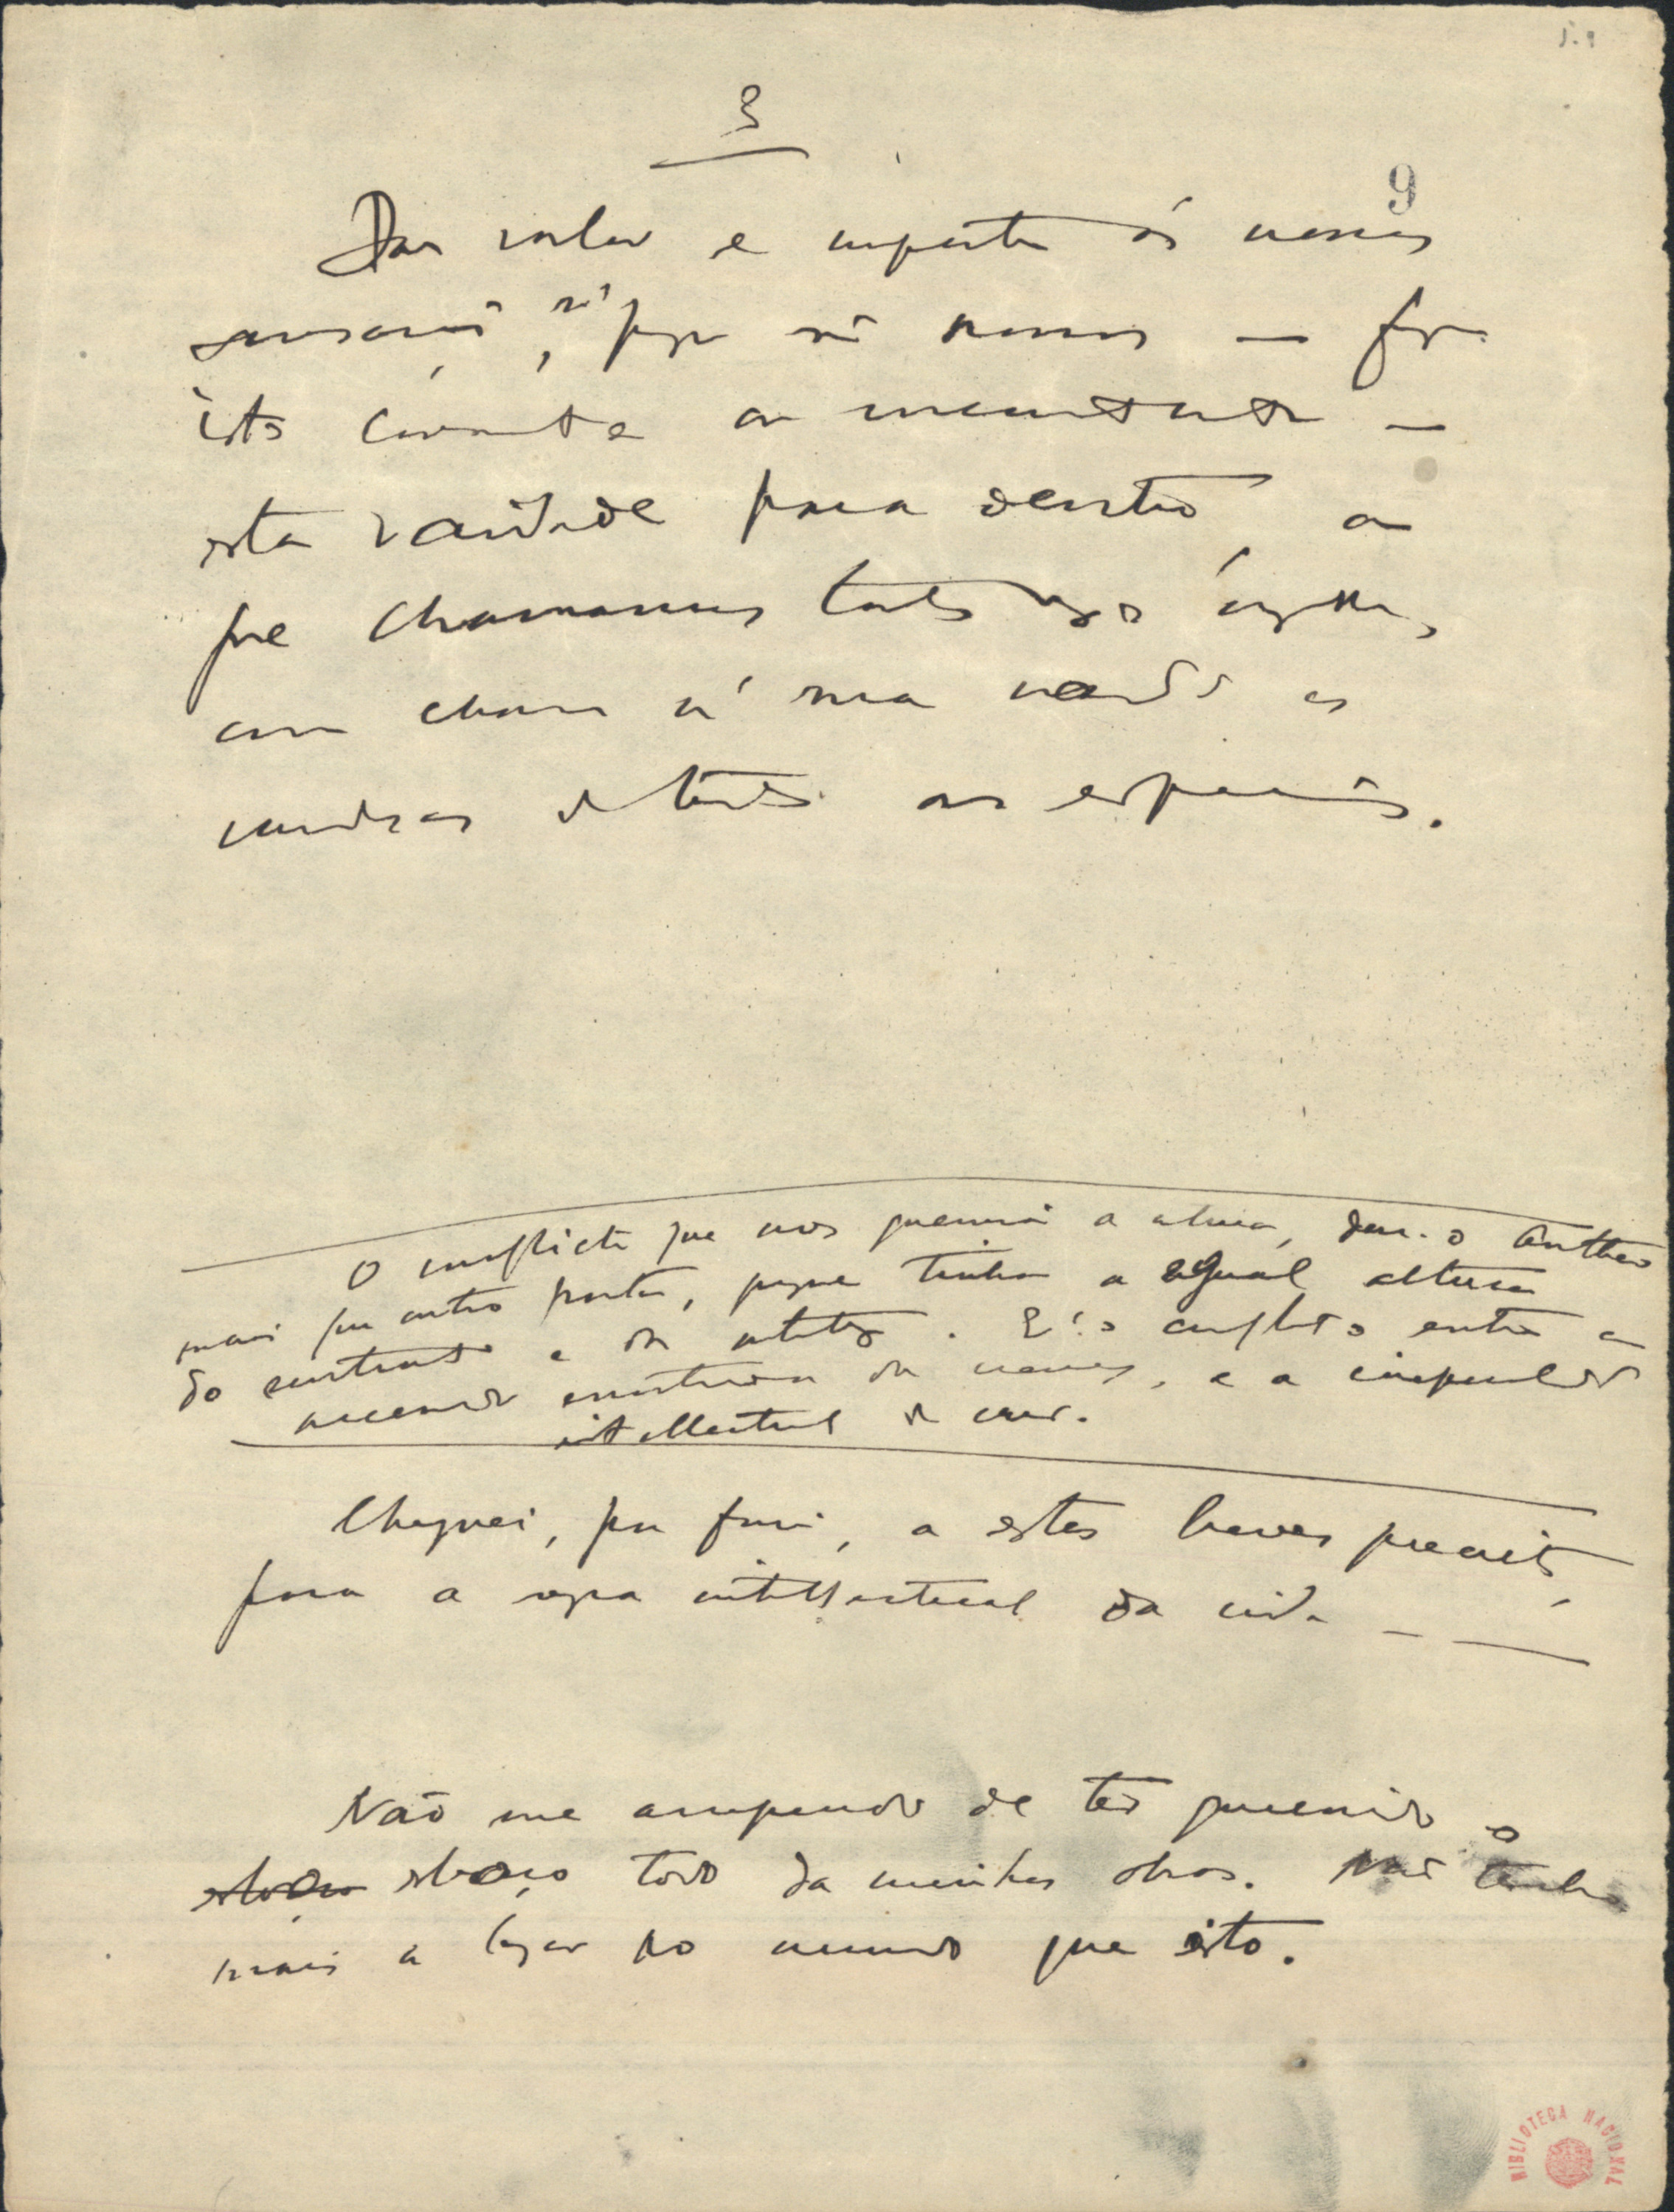 3
9
Dar valor e importancia ás nossas
sensações, só porque são nossas — fez
isto consciente ou inconscientemente —
esta vaidade para dentro, a
que chamamos tantas vezes orgulho,
como chama á sua verdade as
verdades de todas as especies.
O conflicto que nos queima a alma, deu-o Anthero
mais que outro poeta, porque tinha a egual altura
do sentimento e da intelligencia. É o conflicto entre a
necessidade emotiva da crença, e a impossibilidade
intellectual de crer.
Cheguei, por fim, a estes breves preceitos,
para a regra intellectual da vida —
Não me arrependo de ter queimado o
esboço esboço todo das minhas obras. Não tenho
mais a legar ao mundo que isto.
BIBLIOTECA NACIONAL